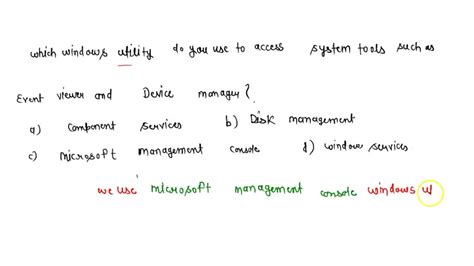 which windows utility do you use to access system tools such as
Event viewer and Device manager?
a) component services b) Disk management
c) microsoft management console d) window services
we use microsoft management console windows